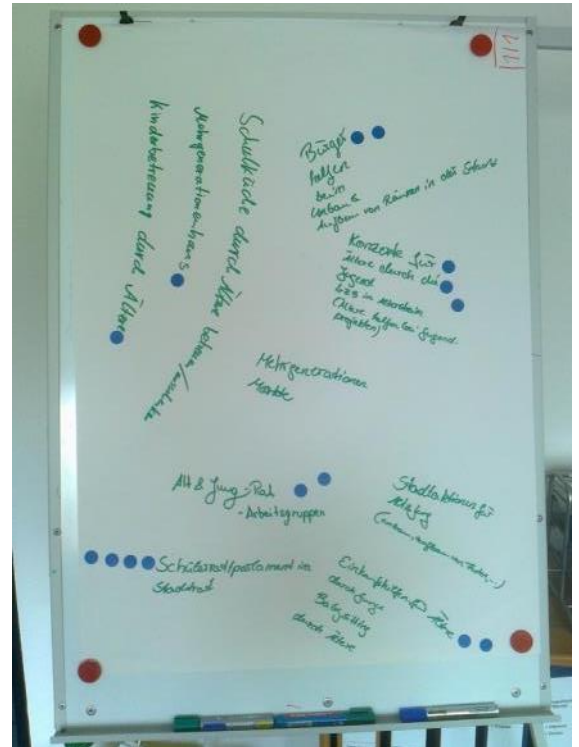 Kinderbetreuung durch Ältere
Mehrgenerationenhaus
Schulküche durch Ältere
Bürger
helfen
beim
Umbau &
Aufbau von Räumen in der Stadt
Konzerte für
Ältere durch die
Jugend
(Ältere helfen bei Jugend-
projekten)
Mehrgenerationen
Märkte
Alt & Jung-Rat
- Arbeitsgruppen
Stadtaktionen für
Schülerrat/parlament im
Stadtrat
Einkaufshilfen für Ältere
durch Junge
Babysitting
durch Ältere